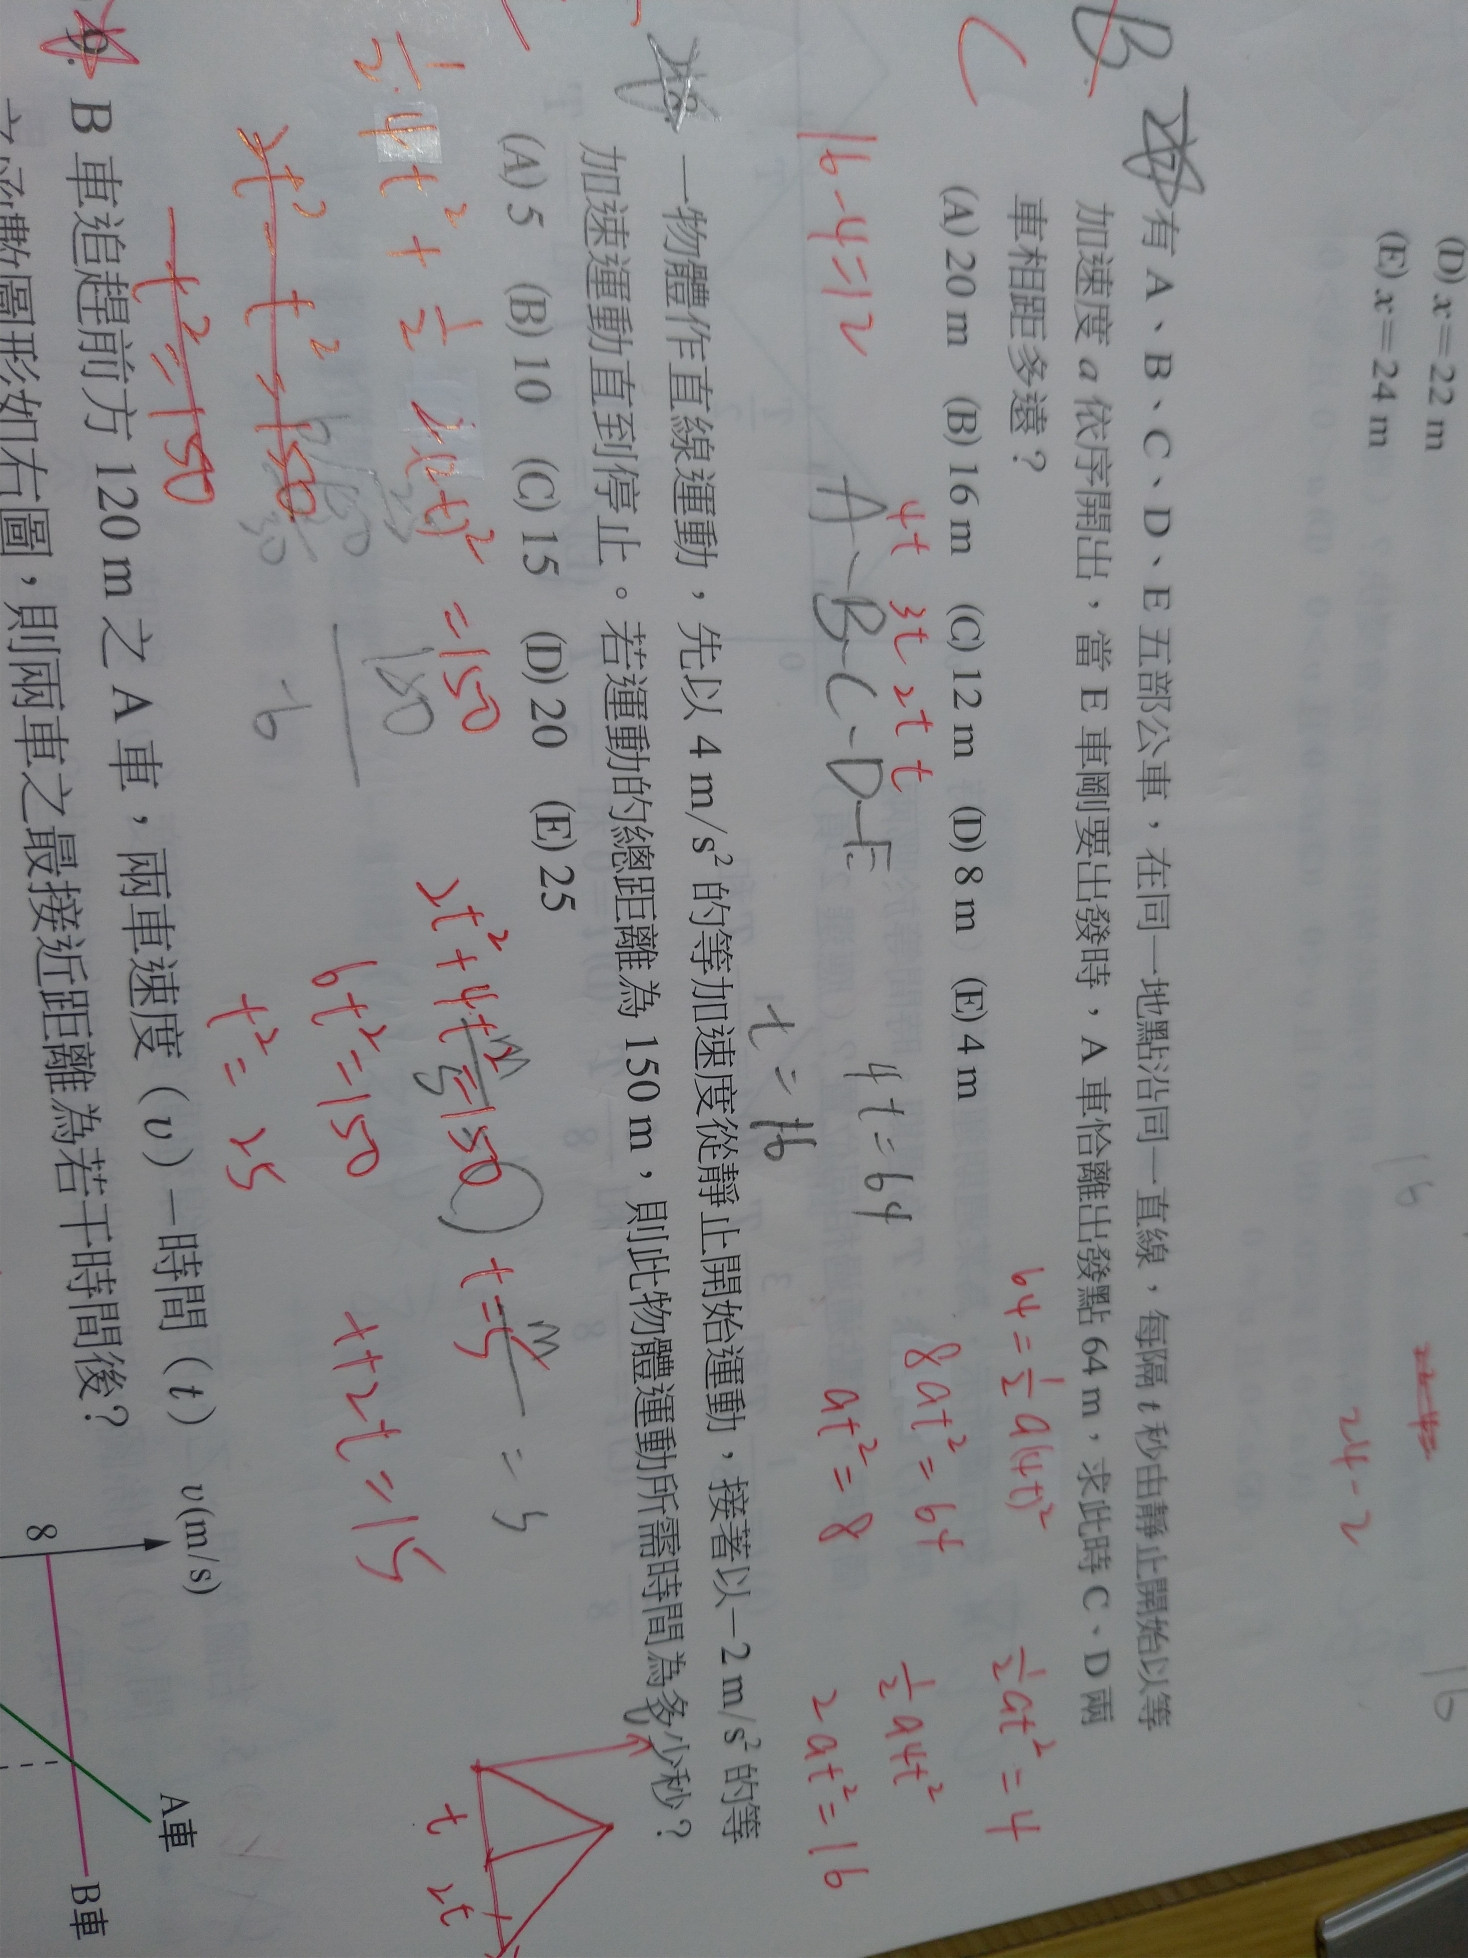 (D) x＝22 m
(E) x＝24 m
16
24-2
16
B
有 A、B、C、D、E 五部公車，在同一地點沿同一直線，每隔 t 秒由靜止開始以等
加速度 a 依序開出，當 E 車剛要出發時，A 車恰離出發點 64 m，求此時 C、D 兩
車相距多遠？
(A) 20 m (B) 16 m (C) 12 m (D) 8 m (E) 4 m
C
64=½a(4t)²
½at²=4
4t 3t 2t t
8at²=64
½a4t²
A-B-C-D-E
4t=64
at²=8
2at²=16
16-4=12
t=16
8. 一物體作直線運動，先以 4 m/s² 的等加速度從靜止開始運動，接著以－2 m/s² 的等
加速運動直到停止。若運動的總距離為 150 m，則此物體運動所需時間為多少秒？
(A) 5 (B) 10 (C) 15 (D) 20 (E) 25
v
½·4t²+½·2(2t)²=150
2t²+4t²=150
t=5
=5
t 2t
150
6t²=150
t+2t=15
2t²-t²=150
-6
t²=25
-t²=150
9. B 車追趕前方 120 m 之 A 車，兩車速度（v）－時間（t）
之函數圖形如右圖，則兩車之最接近距離為若干時間後？
v(m/s)
8
A車
B車